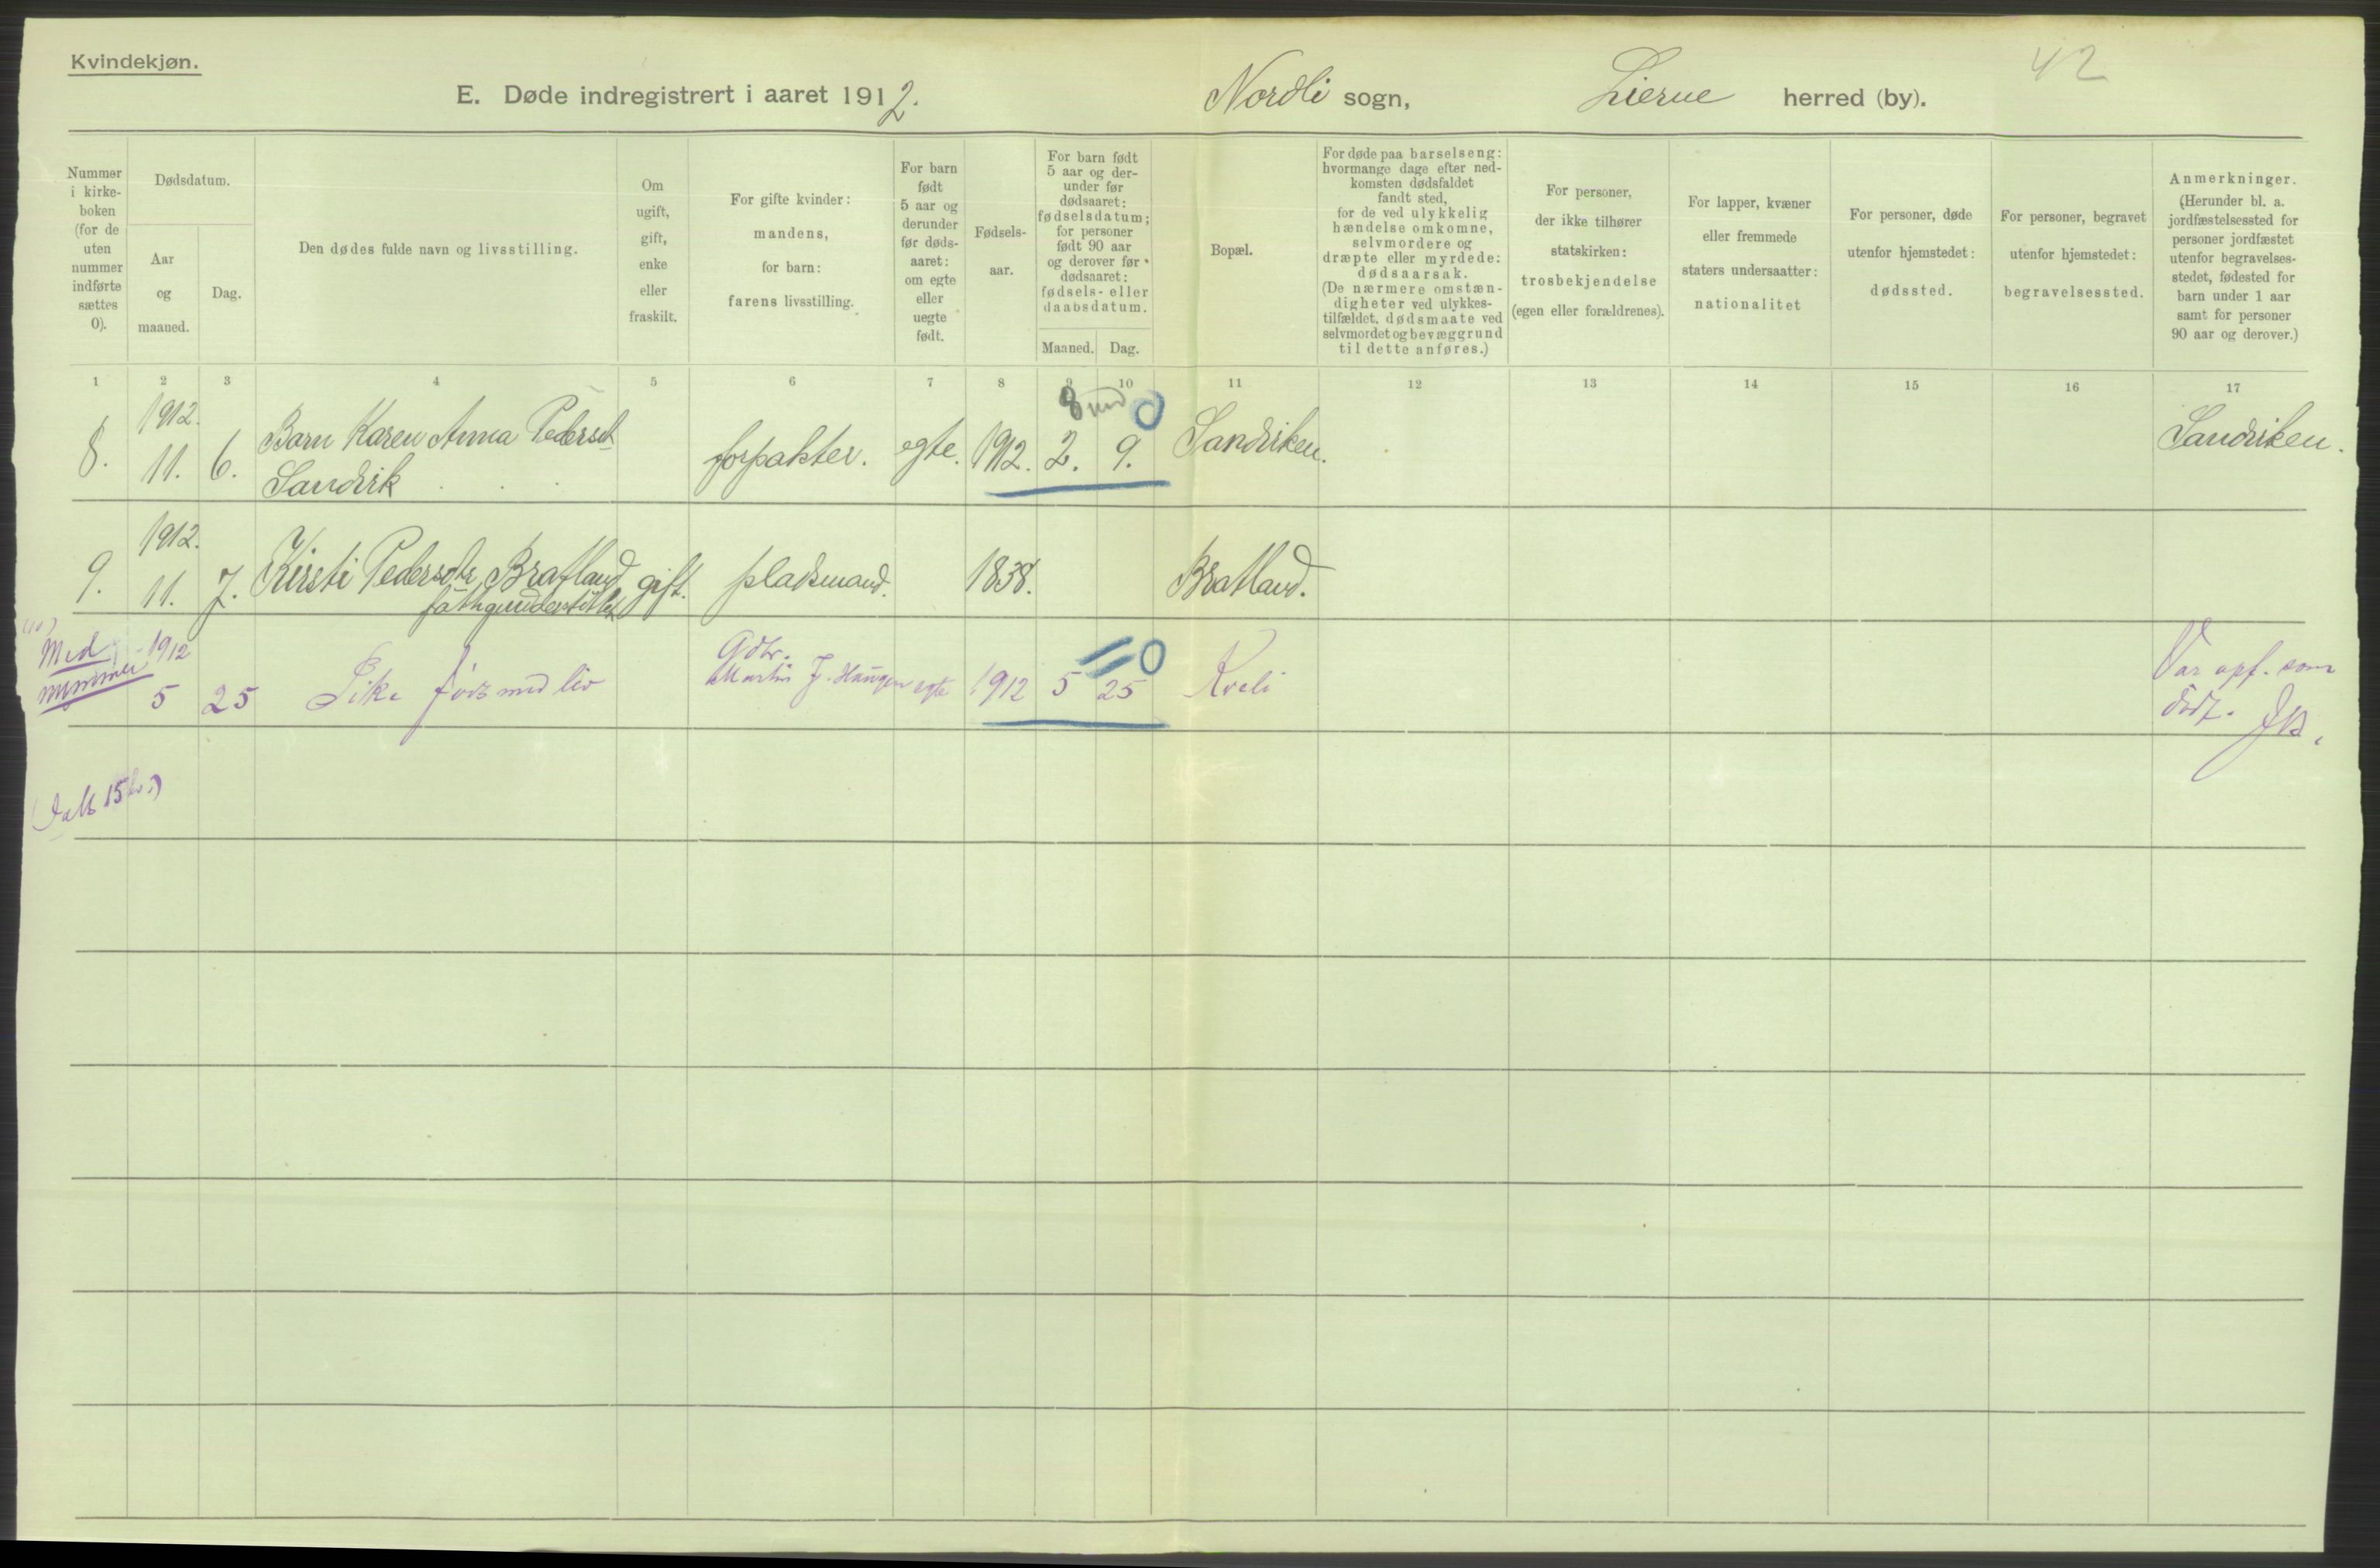 Kvindekjøn.
42
E. Døde indregistrert i aaret 1912. Nordli sogn, Lierne herred (by).
Nummer
i kirke-
boken
(for de
uten
nummer
indførte
sættes
0).
Dødsdatum.
Aar
og
maaned.
Dag.
Den dødes fulde navn og livsstilling.
Om
ugift,
gift,
enke
eller
fraskilt.
For gifte kvinder:
mandens,
for barn:
farens livsstilling.
For barn
født
5 aar og
derunder
før døds-
aaret:
om egte
eller
uegte
født.
Fødsels-
aar.
For barn født
5 aar og der-
under før
dødsaaret:
fødselsdatum;
for personer
født 90 aar
og derover før
dødsaaret:
fødsels- eller
daabsdatum.
Maaned. Dag.
Bopæl.
For døde paa barselseng:
hvormange dage efter ned-
komsten dødsfaldet
fandt sted,
for de ved ulykkelig
hændelse omkomne,
selvmordere og
dræpte eller myrdede:
dødsaarsak.
(De nærmere omstæn-
digheter ved ulykkes-
tilfældet, dødsmaate ved
selvmordet og bevæggrund
til dette anføres.)
For personer,
der ikke tilhører
statskirken:
trosbekjendelse
(egen eller forældrenes).
For lapper, kvæner
eller fremmede
staters undersaatter:
nationalitet
For personer, døde
utenfor hjemstedet:
dødssted.
For personer, begravet
utenfor hjemstedet:
begravelsessted.
Anmerkninger.
(Herunder bl. a.
jordfæstelsessted for
personer jordfæstet
utenfor begravelses-
stedet, fødested for
barn under 1 aar
samt for personer
90 aar og derover.)
1 2 3 4 5 6 7 8 9 10 11 12 13 14 15 16 17
8 md 0
1912.
8. 11. 6. Barn Karen Anna Pedersdt
Sandvik forpakter. egte. 1912. 2. 9. Sandviken. Sandviken.
1912.
9. 11. 7. Kirsti Pedersdtr Bratland gift. pladsmand. 1838. Bratland.
fattigunderstøttet
(10)
Med
nummer
1912
5 25 Pike født med liv
Gdbr.
Martin J. Haugen egte 1912 5 25 Kveli
0
Var opf. som
dødf. JB.
(Ialt 15 kv.)